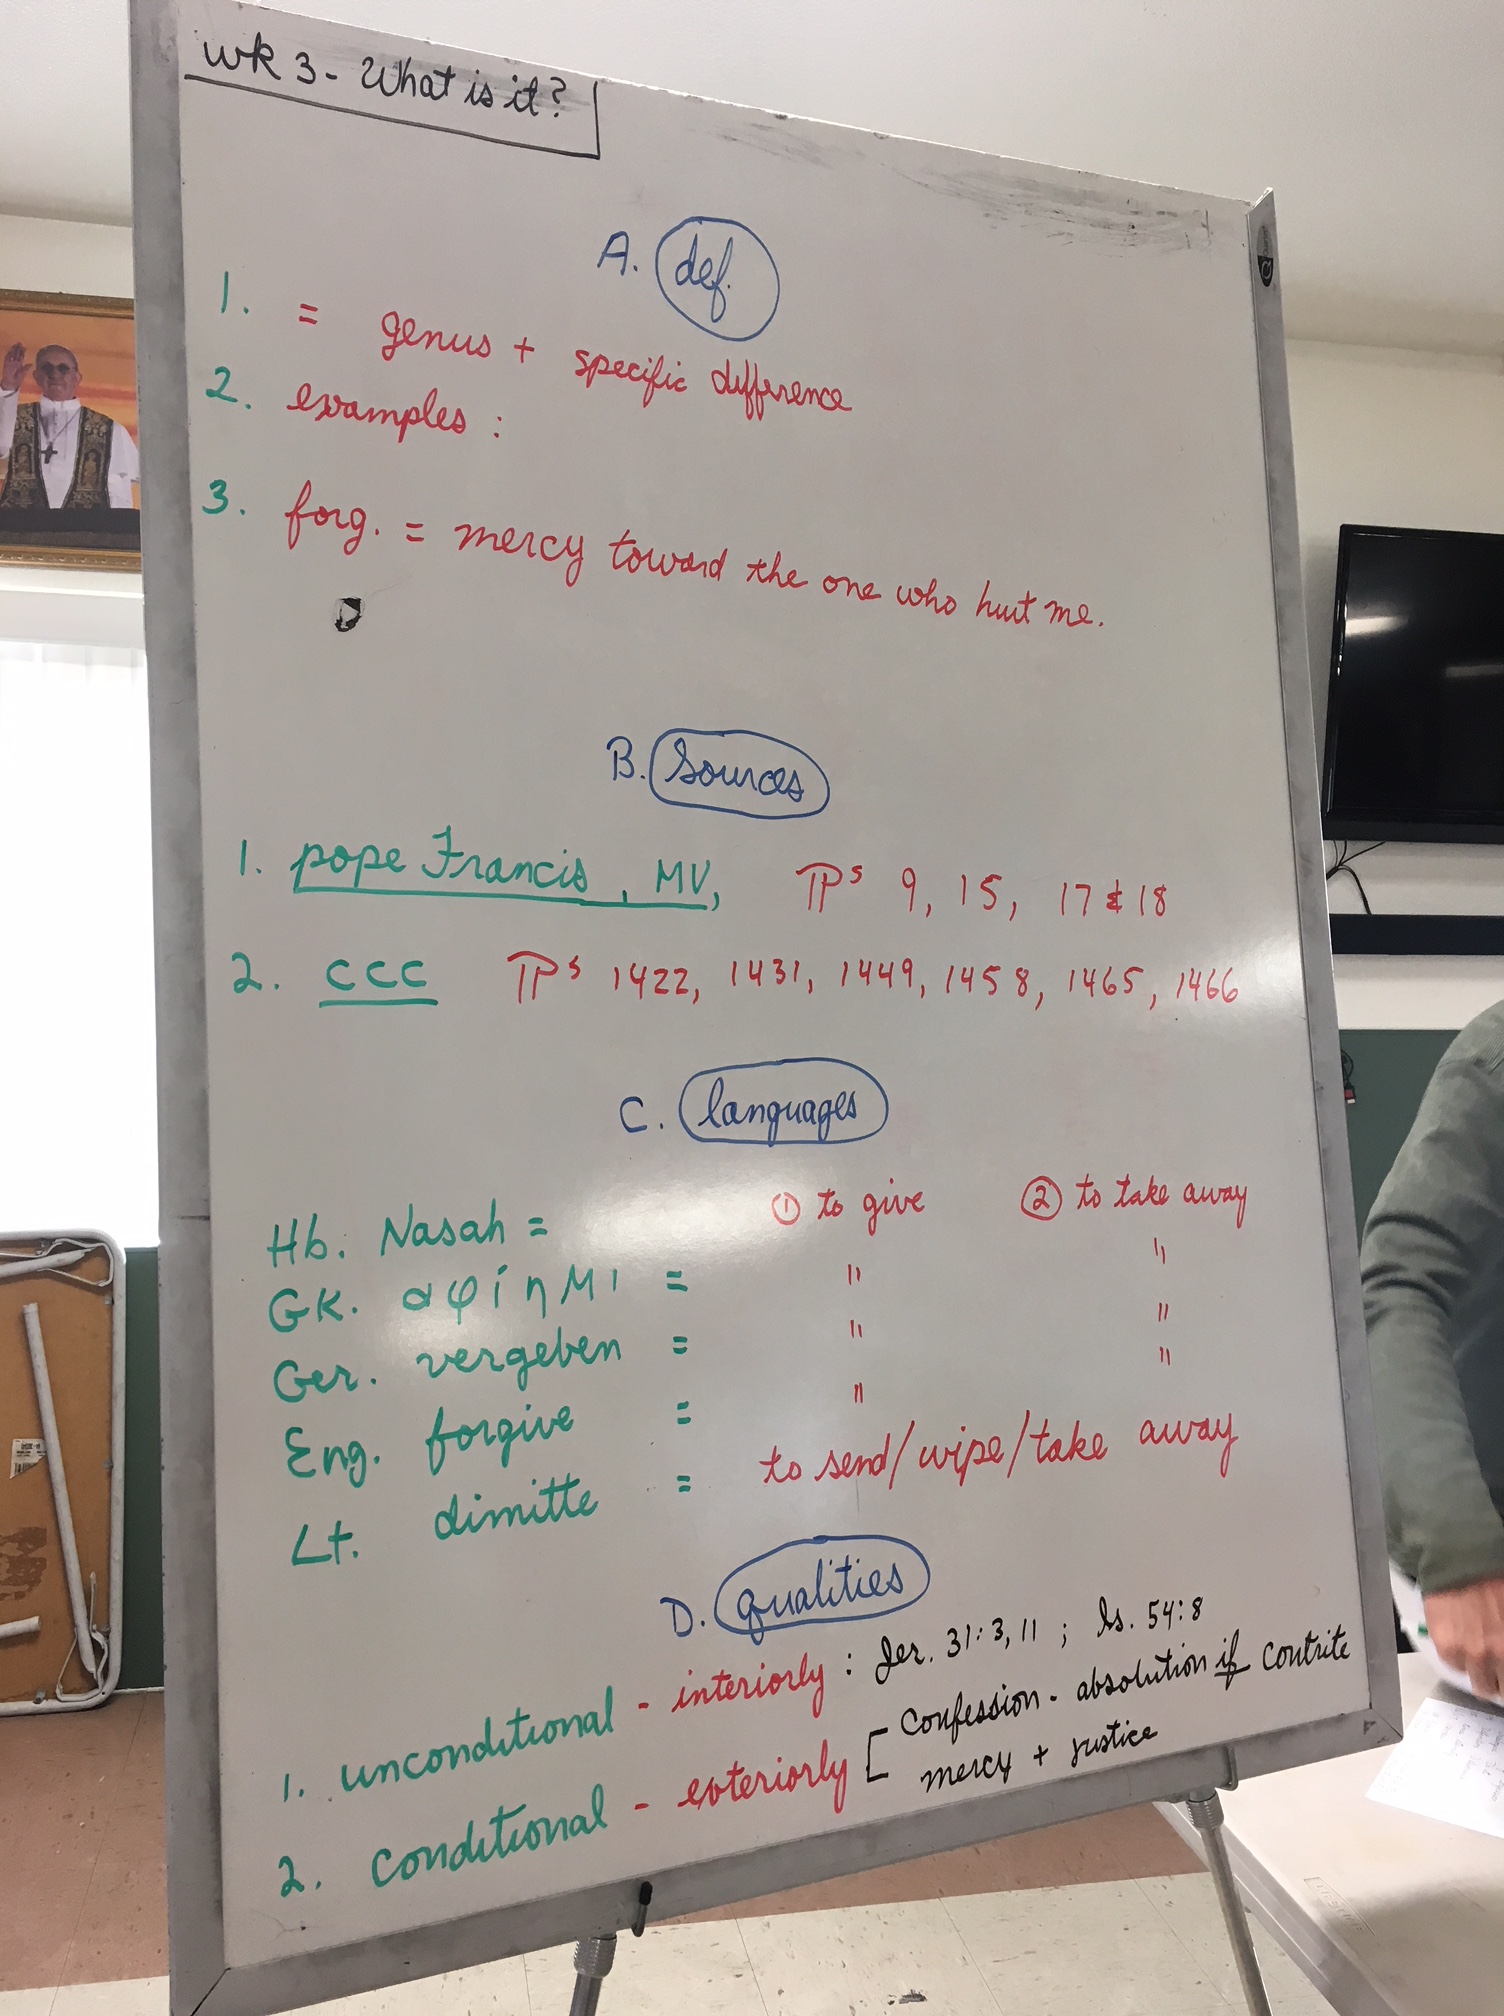 wk 3 - What is it?
A. def.
1. = genus + specific difference
2. examples :
3. forg. = mercy toward the one who hurt me.
B. Sources
1. pope Francis, MV, ¶s 9, 15, 17 & 18
2. CCC ¶s 1422, 1431, 1449, 1458, 1465, 1466
C. languages
Hb. Nasah = ① to give ② to take away
GK. αφίημι = " "
Ger. vergeben = " "
Eng. forgive = " "
Lt. dimitte = to send/wipe/take away
D. qualities
1. unconditional - interiorly : Jer. 31:3, 11 ; Is. 54:8
2. conditional - exteriorly [ Confession - absolution if contrite
mercy + justice